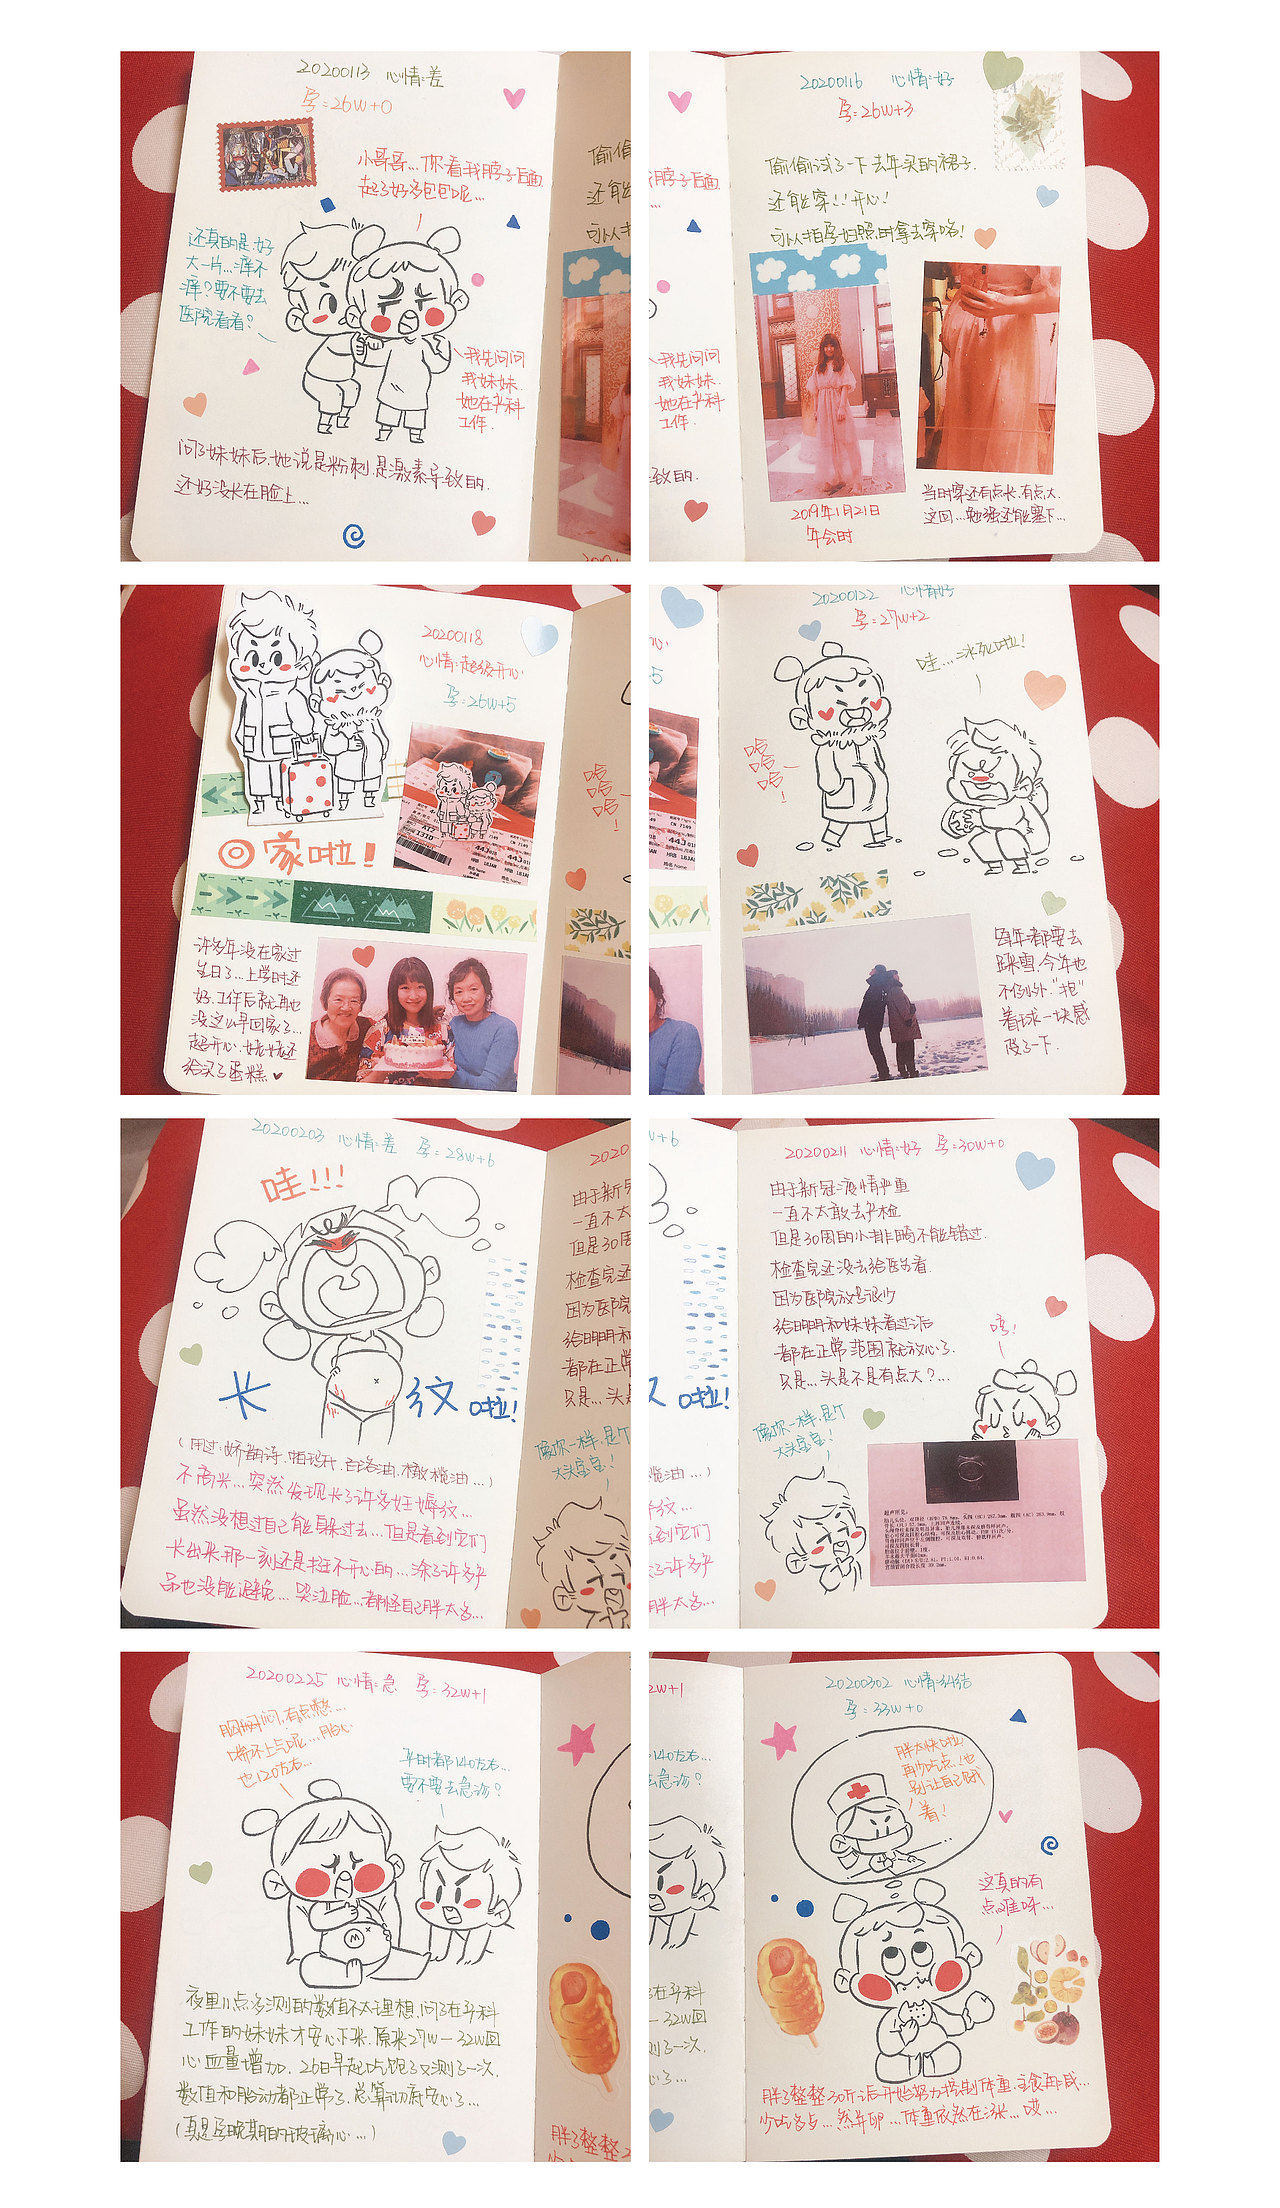 20200113 心情:差
孕=26w+0
小哥哥...你看我脖子后面
起了好多包包呢...
还真的是.好
大一片...痒不
痒?要不要去
医院看看?
我先问问
我妹妹.
她在产科
工作.
问了妹妹后.她说是粉刺.是激素导致的.
还好没长在脸上...
20200116 心情:好
孕=26w+3
偷偷试了一下去年买的裙子.
还能穿!!开心!
可以拍孕妇照时拿去穿咯!
2019年1月21日
年会时
当时穿还有点长.有点大.
这回...勉强还能塞下...
20200118
心情:超级开心
孕=26w+5
回家啦!
许多年没在家过
生日了...上学时还
好.工作后就再也
没这么早回家了...
超开心.姥姥还
给买了蛋糕
20200122 心情:好
孕=27w+2
哇...冰死啦!
哈
哈
哈
!
每年都要去
踩雪.今年也
不例外."抱"
着球一块感
受了一下.
20200203 心情:差 孕=28w+6
哇!!!
长 纹 啦!
不高兴...突然发现长了许多妊娠纹...
虽然没想过自己能躲过去...但是看到它们
长出来那一刻还是挺不开心的...涂了许多产
品也没能避免...哭泣脸...都怪自己胖太多...
20200211 心情:好 孕=30w+0
由于新冠疫情严重
一直不太敢去产检
但是30周的小排畸不能错过.
检查完还没去给医生看.
因为医院放号很少
给明明和妹妹看过后
都在正常范围就放心了.
只是...头是不是有点大?...
像你一样.是个
大头宝宝!
20200225 心情:急 孕=32w+1
胸闷闷.有点憋...
喘不上气呢...胎心
也120左右...
平时都140左右...
要不要去急诊?
夜里11点多测的数值不太理想.问了在产科
工作的妹妹才安心下来.原来27w—32w回
心血量增加.26日早起吃饱了又测了一次.
数值和胎动都正常了.总算彻底安心了...
(真是孕晚期的玻璃心...)
20200302 心情:纠结
孕=33w+0
胖太快啦!
再少吃点!也
别让自己饿
着!
这真的有
点难呀...
胖了整整30斤后开始努力控制体重.主食再减...
少吃多点...然并卵...体重依然在涨...哎...